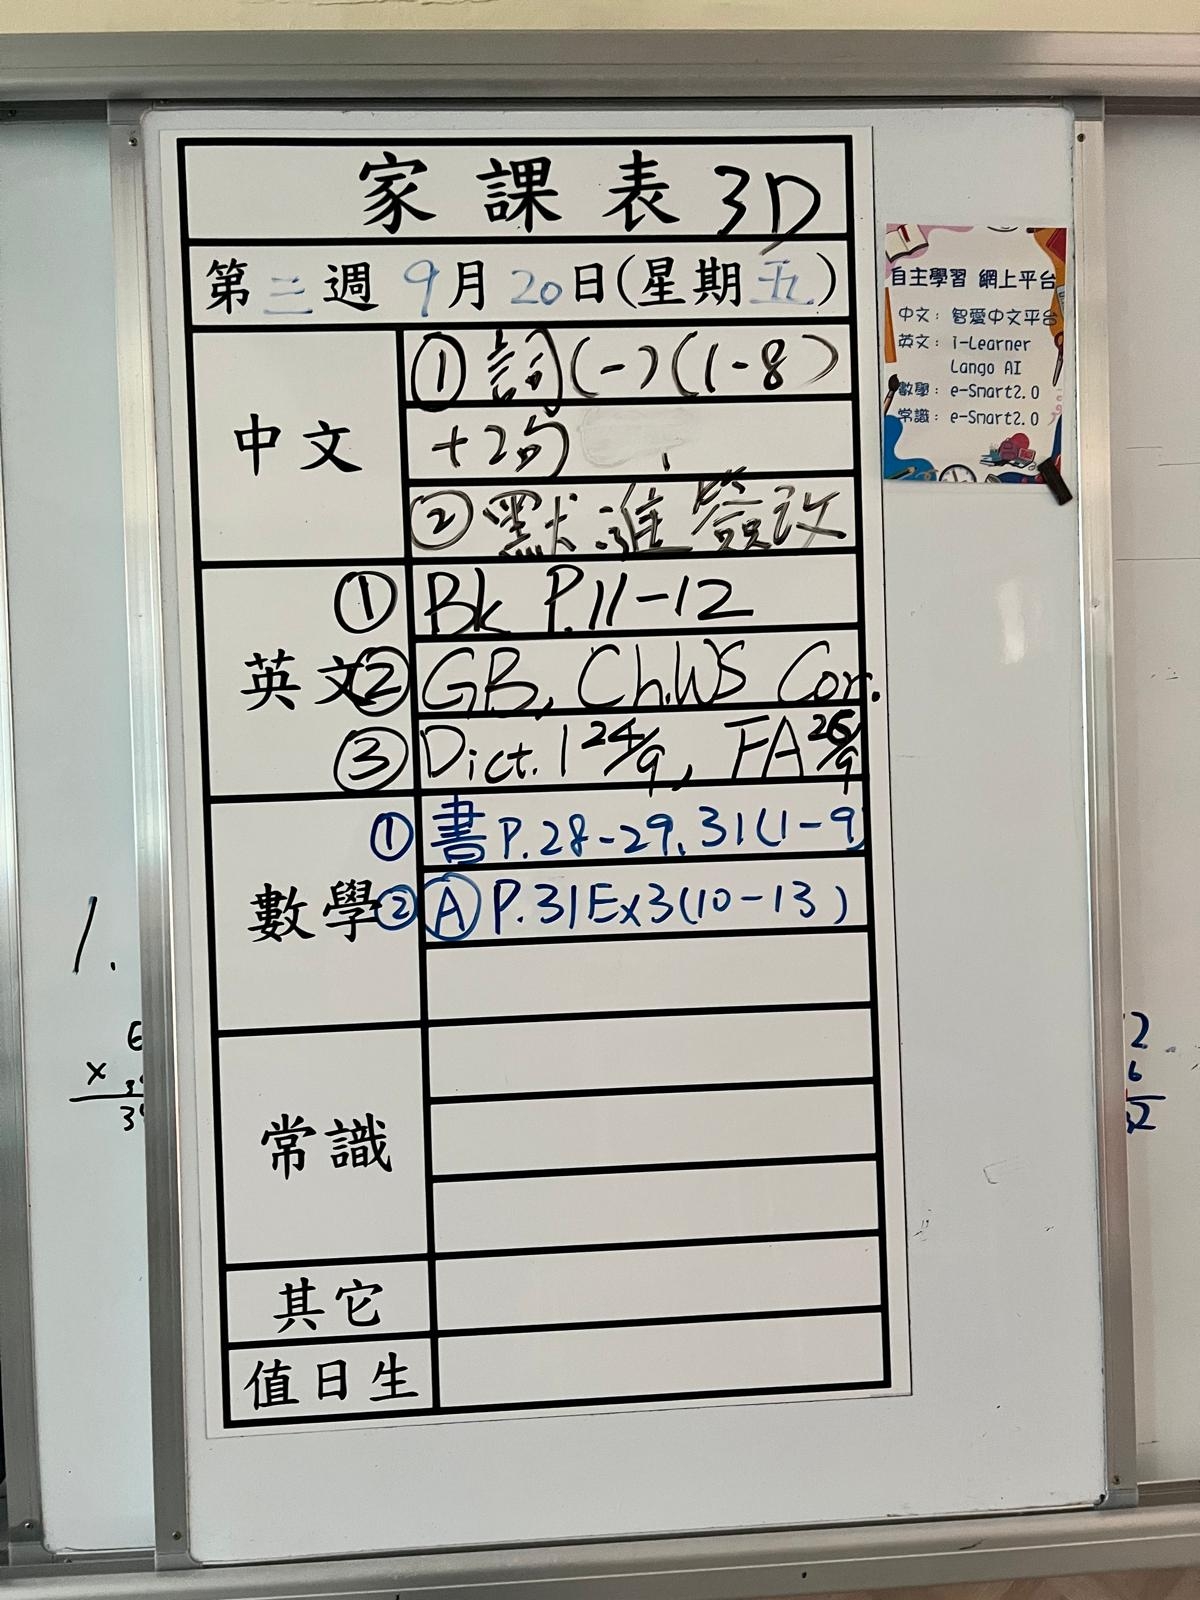 家課表 3D
第三週 9月20日(星期五)
中文
① 詞(一)(1-8)
+2句
② 默進簽改
英文
① Bk P.11-12
② GB, Ch.WS Cor.
③ Dict. 1 24/9, FA 26/9
數學
① 書 P.28-29, 31(1-9)
② Ⓐ P.31 Ex3(10-13)
常識
其它
值日生
自主學習 網上平台
中文：智愛中文平台
英文：i-Learner
Lango AI
數學：e-Smart2.0
常識：e-Smart2.0
1.